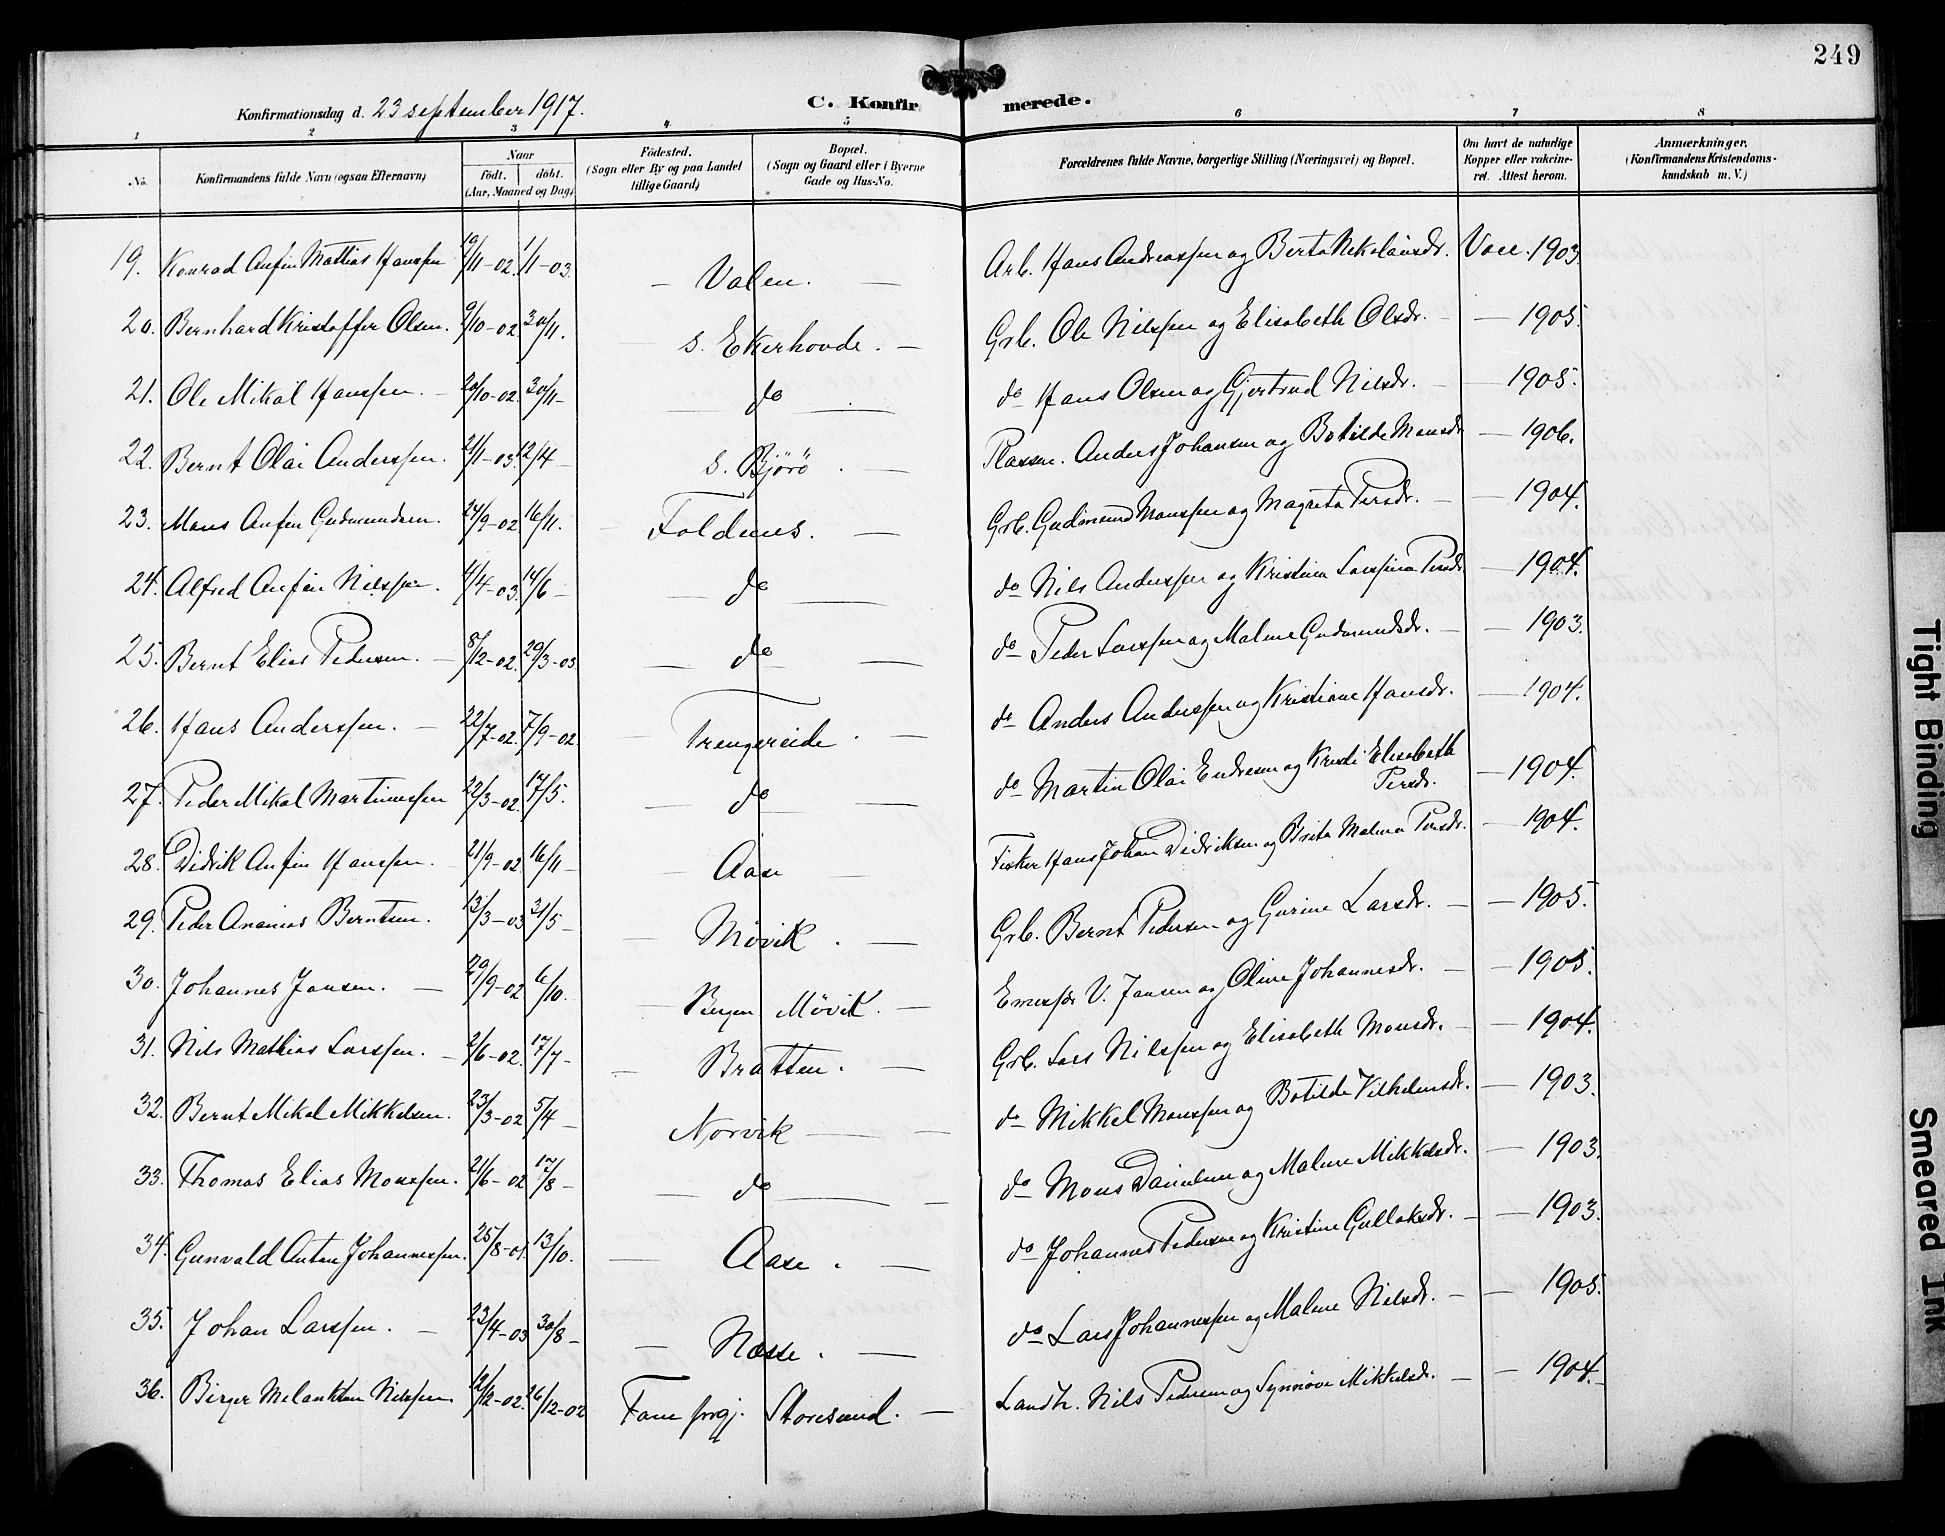 249
Konfirmationsdag d. 23 september 1917.
C. Konfirmerede.
1 2 3 4 5 6 7 8
No. Konfirmandens fulde Navn (ogsaa Efternavn) Naar født. døbt. (Aar, Maaned og Dag) Födested. (Sogn eller By og paa Landet tillige Gaard) Bopæl. (Sogn og Gaard eller i Byerne Gade og Hus-No. Forældrenes fulde Navne, borgerlige Stilling (Næringsvei) og Bopæl. Om havt de naturlige Kopper eller vaccineret. Attest herom. Anmærkninger. (Konfirmandens Kristendomskundskab m. V.)
19. Konrad Anfin Mathias Hanssen 19/11-02. 1/1-03. — Valen. — Arb. Hans Andreassen og Berta Nikolaisdr. Vacc. 1903.
20. Bernhard Kristoffer Olsen. 9/10-02 30/11. S. Ekerhovde. — Grb. Ole Nilssen og Elisabeth Olsdr. — 1905.
21. Ole Mikal Hanssen. 20/10-02 30/11- — do — do Hans Olsen og Gjertrud Nilsdr. — 1905.
22. Bernt Olai Anderssen. 21/1-03. 12/4- S. Bjørö — Plassm. Anders Johansen og Botilde Monsdr — 1906.
23. Mons Anfin Gudmundsen. 24/9-02 16/11. Foldnes. — Grb. Gudmund Monssen og Magreta Persdr. — 1904.
24. Alfred Anfin Nilssen. 4/4-03. 14/6- — do — do Nils Anderssen og Kristina Larssina Persdr. — 1904.
25. Bernt Elias Pedersen. 8/12-02. 29/3-03. — do — do Peder Larssen og Malene Gudmundsdr. — 1903.
26. Hans Anderssen. — 22/7-02. 7/9-02. Trengereide. — do Anders Anderssen og Kristiane Hansdr. — 1904.
27. Peder Mikal Martinussen 22/3-02. 17/5. — do — do Martin Olai Endresen og Kristi Elisabeth Persdr. — 1904.
28. Didrik Anfin Hanssen. 21/9-02. 16/11- — Aase — Fisker Hans Johan Didriksen og Brita Malena Persdr. — 1904.
29. Peder Ananias Berntsen. 13/3-03 31/5- — Møvik. — Grb. Bernt Pedersen og Gurine Larsdr. — 1905.
30. Johannes Jansen. — 29/9-02 6/10. — Bergen Møvik. — V. Jansen og Oline Johannesdr. — 1905.
31. Nils Mathias Larssen. — 2/6-02. 17/7- — Bratten. — Grb. Lars Nilssen og Elisabeth Monsdr. — 1904.
32. Bernt Mikal Mikkelsen. 23/3-02 5/4- Norvik — do Mikkel Monssen og Botilde Vilhelmsdr. — 1903.
33. Thomas Elias Monssen. 21/6-02 17/8- — do — do Mons Danielsen og Malene Mikkelsdr. — 1903.
34. Gunvald Anton Johannessen. 25/8-01. 13/10. — Aase. — do Johannes Pedersen og Kristine Gullaksdr. — 1903.
35. Johan Larssen. — 23/4-03 30/8- — Næsse. — do Lars Johannessen og Malene Nilsdr. — 1905.
36. Birger Melankton Nilssen. 12/12-02. 26/12-02 Fane prgj. Storesund. — Landh. Nils Pedersen og Synnöve Mikkelsdr. — 1904.
Tight Binding
Smeared Ink